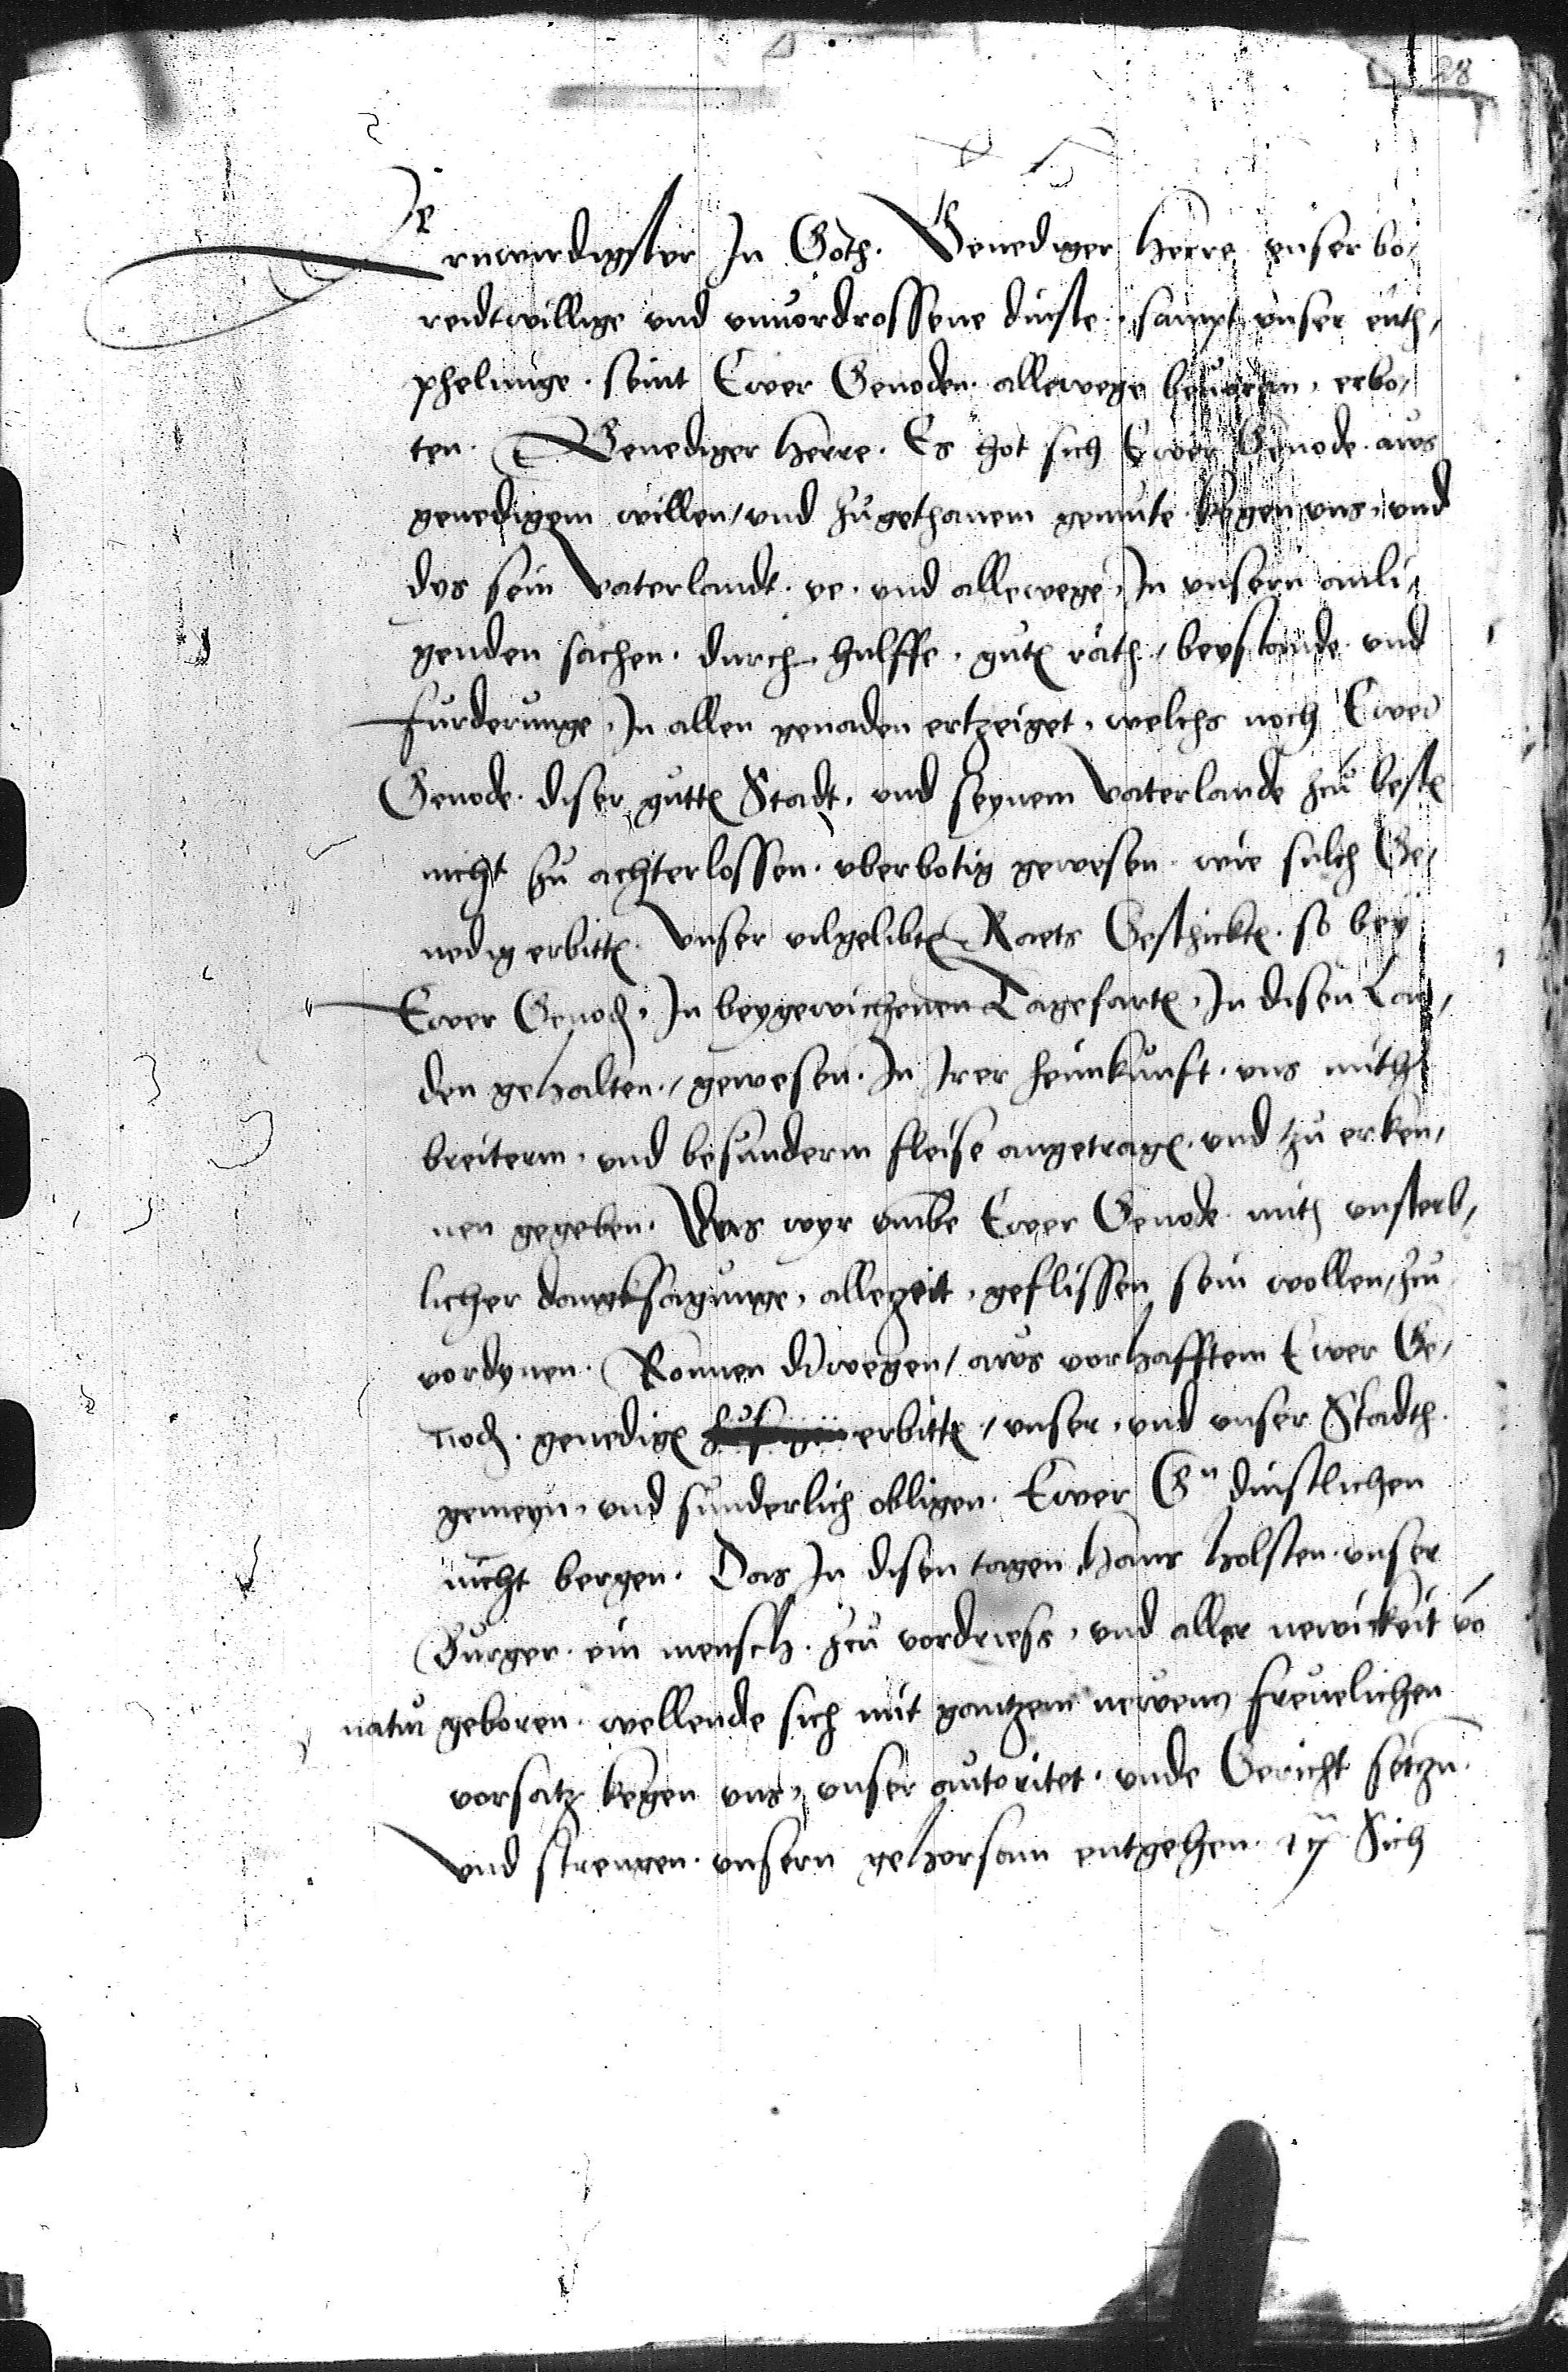 28
Erwirdigster In Goth. Genediger Herre unser be¬
reidtwillige und unvordrossene dinste. sampt unser enth¬
phelunge. seint Ewer Genoden. allewege bevoren. erbo¬
ten. Genediger Herre. Es hot sich Ewer Genode. aws
genedigem willen / und zugethanem gemute. kegen uns. und
dys sein Vaterlandt. ye. und allewege. In unsern anli¬
genden sachen. durch hulffe. guten rath. / beystande. und
furderunge. In allen genaden ertzeiget. welchs noch Ewer
Genode. diser gutten Stadt. und seynem Vaterlande zcu besten
nicht zu achterlossen. uberbotig gewesen. wie sulch Ge¬
nedig erbitten. Unser vilgelibten Raets Geschickten. so bey
Ewer Genoden. In beygewichenen Tagefarten. In disen Lan¬
den gehalten. / gewesen. In Irer heimkunft. uns mith
breiterm. und besunderm fleise angetragen. und tzu erken¬
nen gegeben. Das wyr umbe Ewer Genode. mith unsterb¬
licher dancksagunge. allezeit. geflissen sein wollen / zcu
vordynen. Konnen derwegen / aws vorhafftem Ewer Ge¬
noden. genedigen erbitten / unser. und unser Stadth.
gemeyn. und sunderlich obligen. Ewer Gn dinstlichen
nicht bergen. Das In disen tagen Hans Holsten. unser
Burger. ein mensch. zcu vordriess. und aller newickeit vo
natur geboren. wellende sich mit gantzem newem frevelichen
vorsatz kegen uns. unser autoritet. unde Gericht setzen.
Und strengen. unsern gehorsam entgehen. Sich